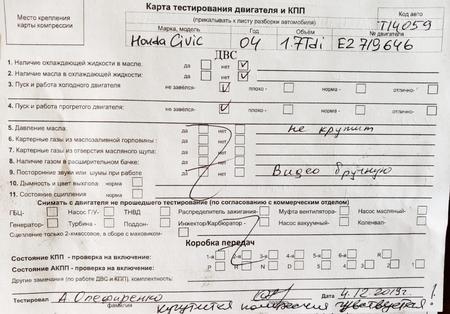 Место крепления карты компрессии
Карта тестирования двигателя и КПП
(прикалывать к листу разборки автомобиля)
Код авто
T14059
Марка, модель Год Объём № двигателя
Honda Civic 04 1.7Tdi E2719646
ДВС
1. Наличие охлаждающей жидкости в масле. да нет
2. Наличие масла в охлаждающей жидкости: да нет
3. Пуск и работа холодного двигателя не завёлся- плохо - норма - отлично-
4. Пуск и работа прогретого двигателя: не завёлся- плохо - норма - отлично-
5. Давление масла. да нет не крутит
6. Картерные газы из маслозаливной горловины: да нет
7. Картерные газы из отверстия масляного щупа: да нет
8. Наличие газов в расширительном бачке: да нет
9. Посторонние звуки или шумы при работе да нет Видео вручную
10. Дымность и цвет выхлопа: норма
11. Состояние сцепления норма
Снимать с двигателя не прошедшего тестирование (по согласованию с коммерческим отделом)
ГБЦ- Насос Г/У- ТНВД - Распределитель зажигания- Муфта вентилятора- Насос масляный-
Генератор- Турбина - Поддон- Инжектор/Карбюратор - Насос вакуумный- Коленвал-
Сцепление только 2-хмассовое, в сборе с маховиком-
Коробка передач
Состояние КПП - проверка на включение: 1-я 2-я 3-я 4-я 5-я 6-я
Состояние АКПП - проверка на включение: P R N D
Другие замечания (по работе ДВС и КПП), комплектность:
Тестировал А. Опеширенко Дата 4.12.2019г.
фамилия
крутится компрессия чувствуется!